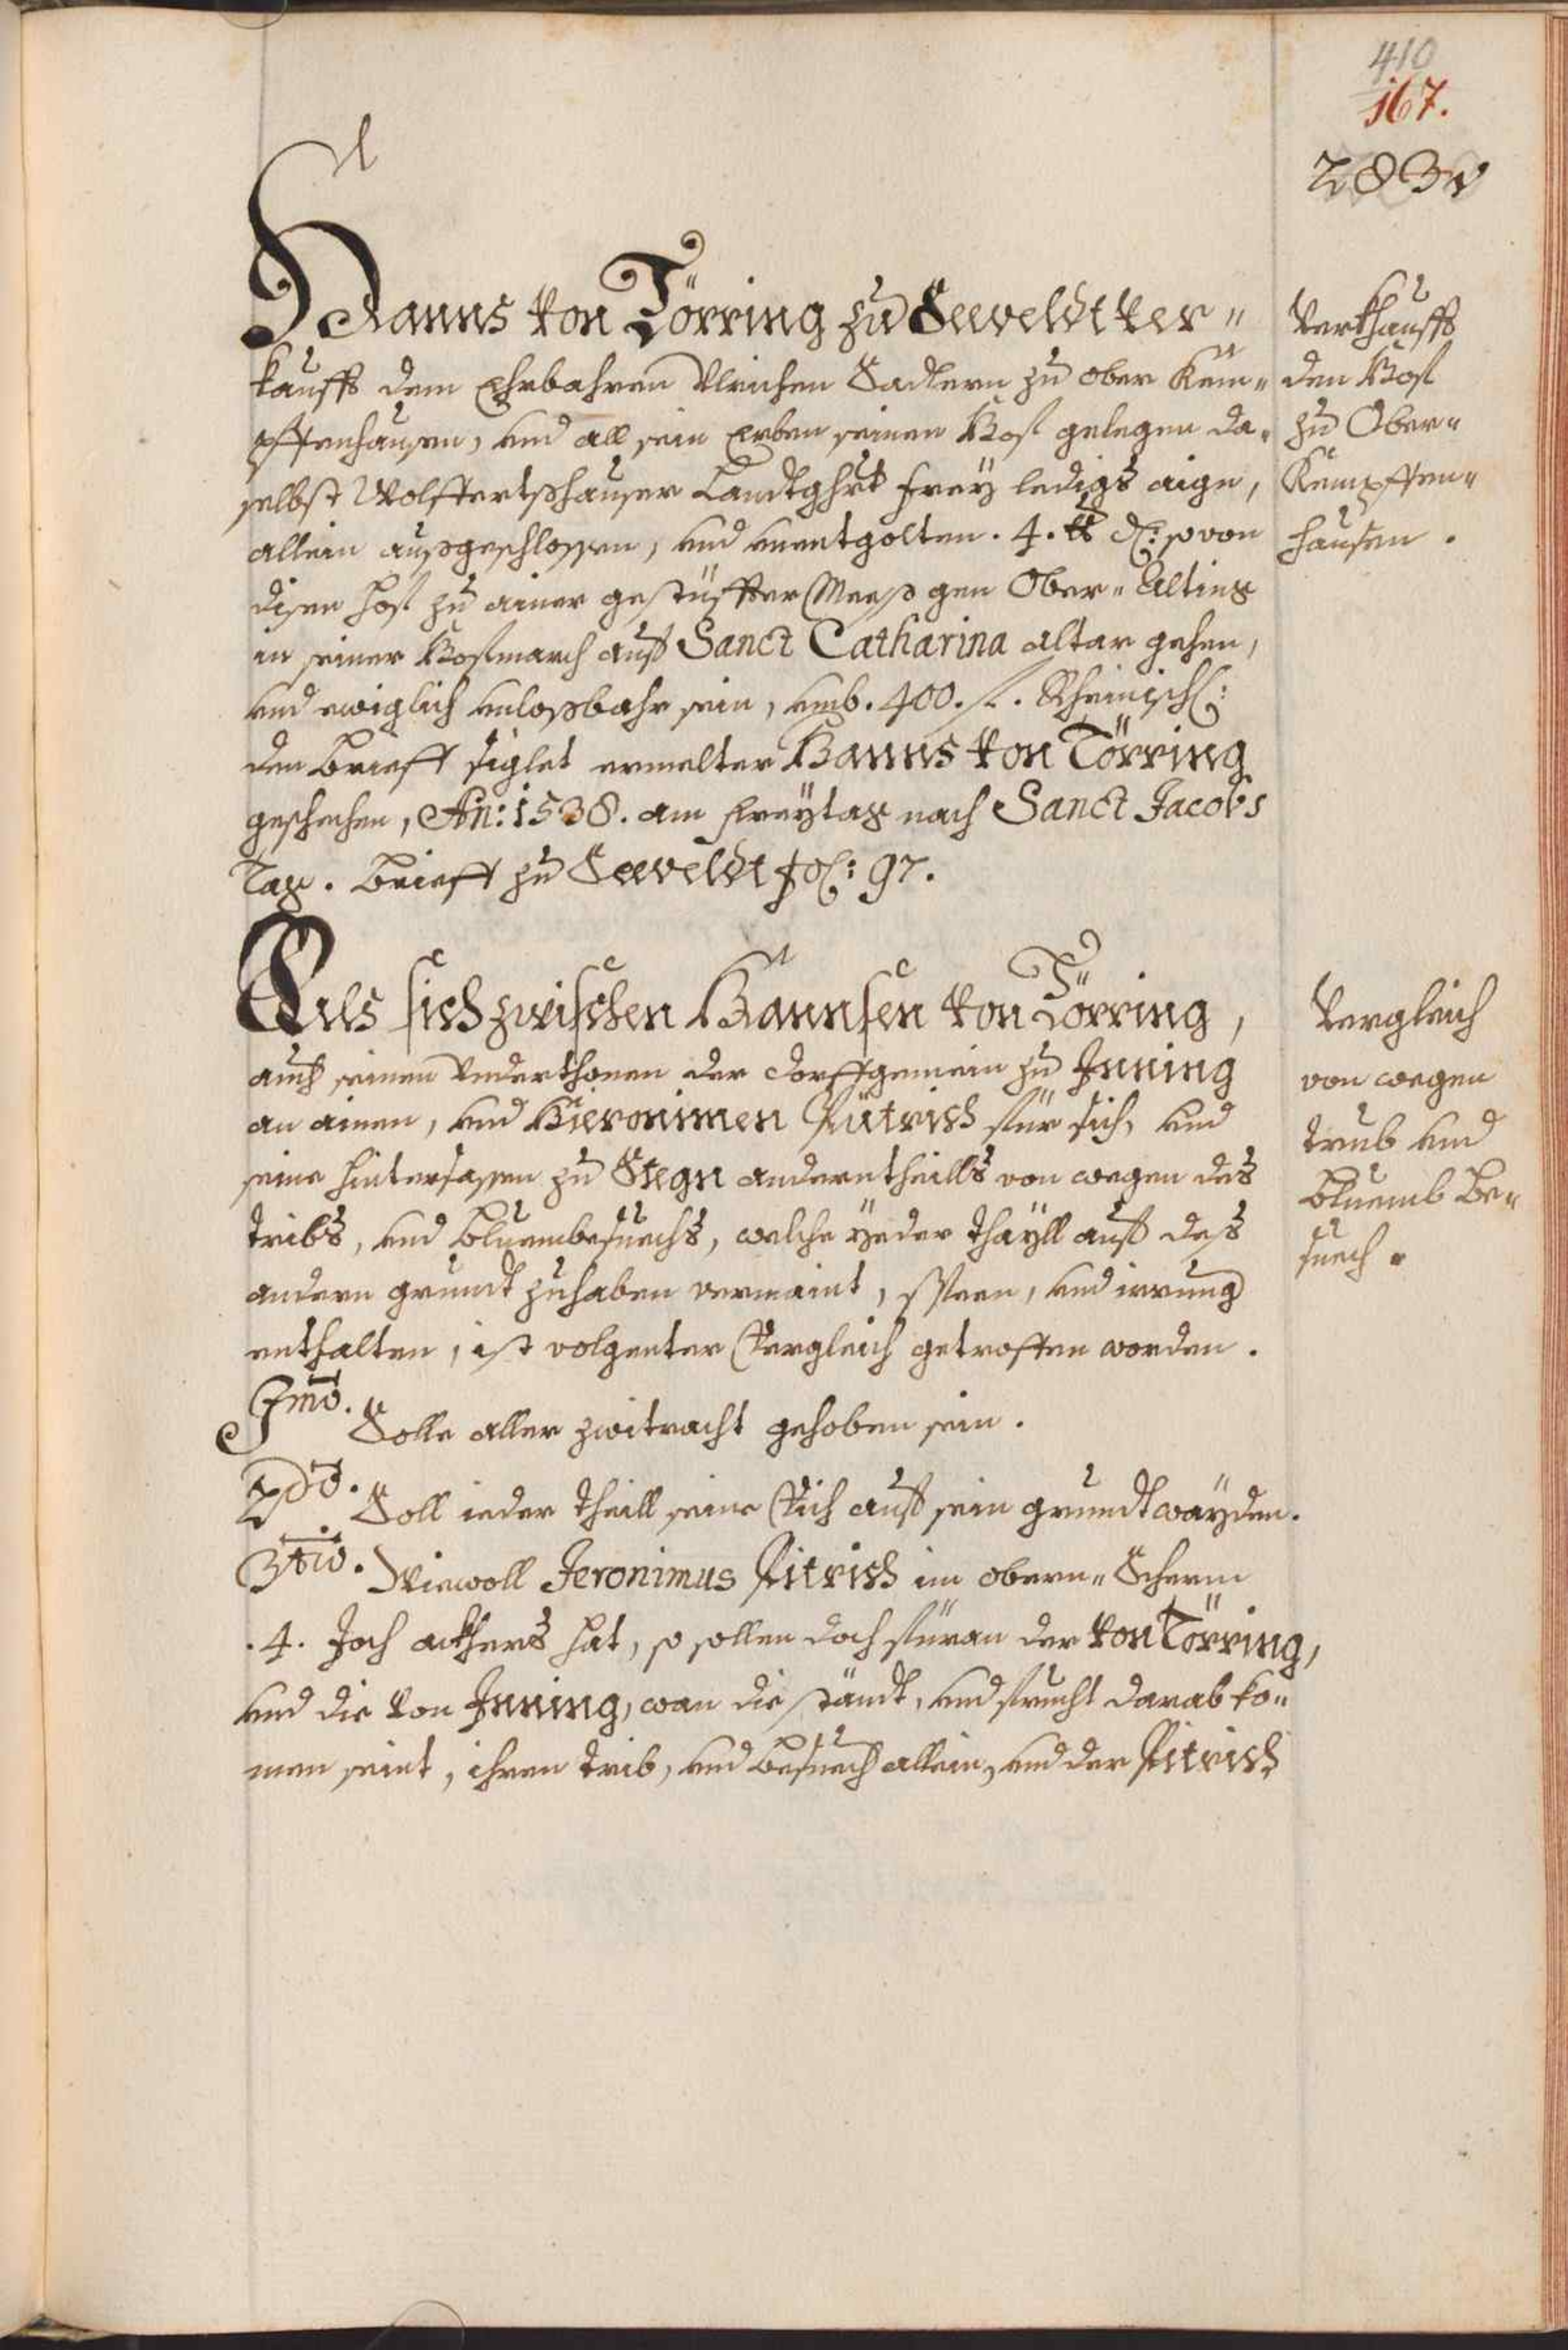 410
167.
283v
Hanns von Törring zu Seeveldt ver=
kaufft dem Ehrbahren Ulrichen Sadlern zu ober Kem=
pffenhausen, und all sein Erben seinen Hof gelegen da=
selbst Wolffertshauser Landtghrt frey ledigs aign,
allein außgeschlossen, und unentgolten. 4. ℔ ₰: so von
disen hof zu ainer gestüffter Meeß gen Ober=Alting
in seiner Hofmarch auf Sanct Catharina altar gehen,
und ewiglich unloßbahr sein, umb. 400. f. Rheinisch:
den brieff siglet ermelter Hanns von Törring
geschechen, An: 1538. am freytag nach Sanct Jacobs
Tag. brieff zu Seeveldt fol: 97.
Verkhaufft
den Hof
zu Ober=
Kempffen=
hausen.
Als sich zwischen Hannsen von Törring,
auch seinen Underthonen der dorffgemein zu Inning
an ainen, und Hieronimen Pütrich für sich, und
seine hintersassen zu Stegn anderntheills von wegen des
tribs, und bluembesuechs, welche yeder thayll auf deß
andern grundt zuhaben vermaint, Speen, und irrung
enthalten, ist volgenter Vergleich getroffen worden.
Vergleich
von wegen
trib und
bluemb be=
suech.
Imo. Solle aller zwitracht gehoben sein.
2do. Soll ieder theill seine Vich auf sein grundt wayden.
3tio. Wiewoll Jeronimus Pitrich im obern=Scherm
.4. Joch ackhers hat, so sollen doch füran der von Törring,
und die von Inning, wan die ständt, und frucht darab ko=
men seint, ihren trib, und besuech allein, und der Pitrich